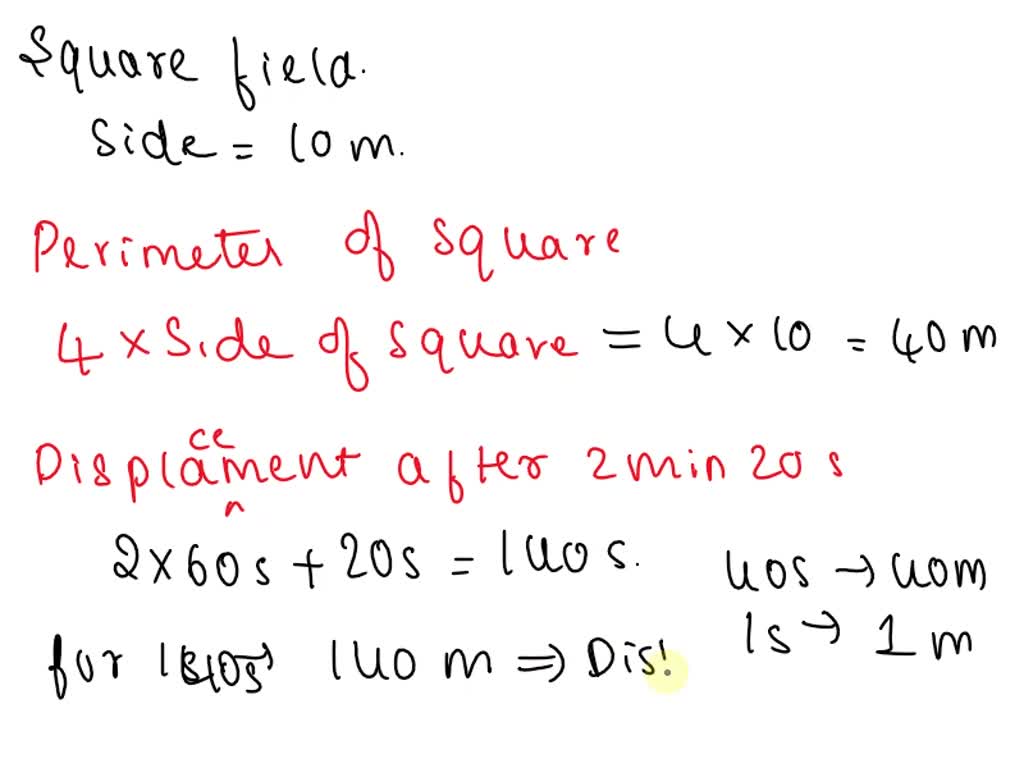 Square field.
Side = 10 m.
Perimeter of square
4 × Side of square = 4 × 10 = 40 m
Displacement after 2 min 20 s
2 × 60 s + 20 s = 140 s.
40s → 40m
1s → 1 m
for 140 m ⇒ Dis